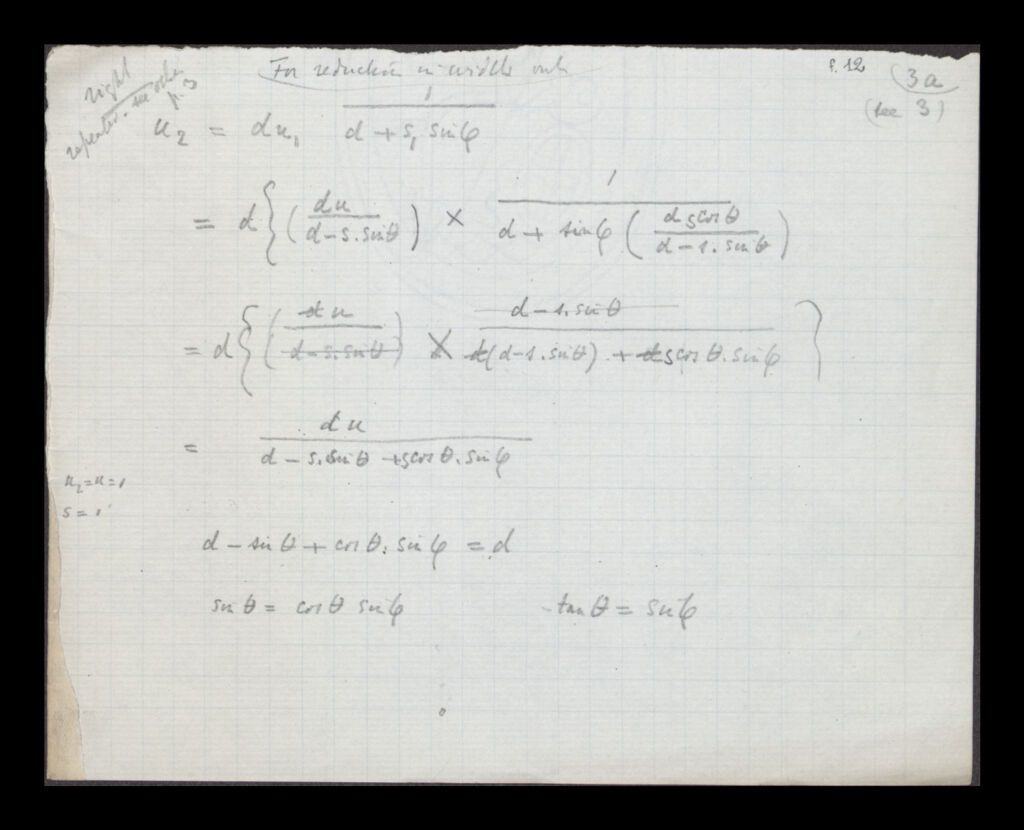 For reduction in width only
f. 12
3a
(see 3)
right
repeated - see other p. 3
u₂ = du₁ 1/(d + s₁ sin φ)
= d { (du/(d - s. sin θ)) × 1/(d + sin φ (d s cos θ/(d - s. sin θ)))
= d { (du/(d - s. sin θ)) × (d - s. sin θ)/(d(d - s. sin θ) + ds cos θ. sin φ) }
= du/(d - s. sin θ + s cos θ. sin φ)
u₂ = u = 1
s = 1
d - sin θ + cos θ. sin φ = d
sin θ = cos θ sin φ tan θ = sin φ